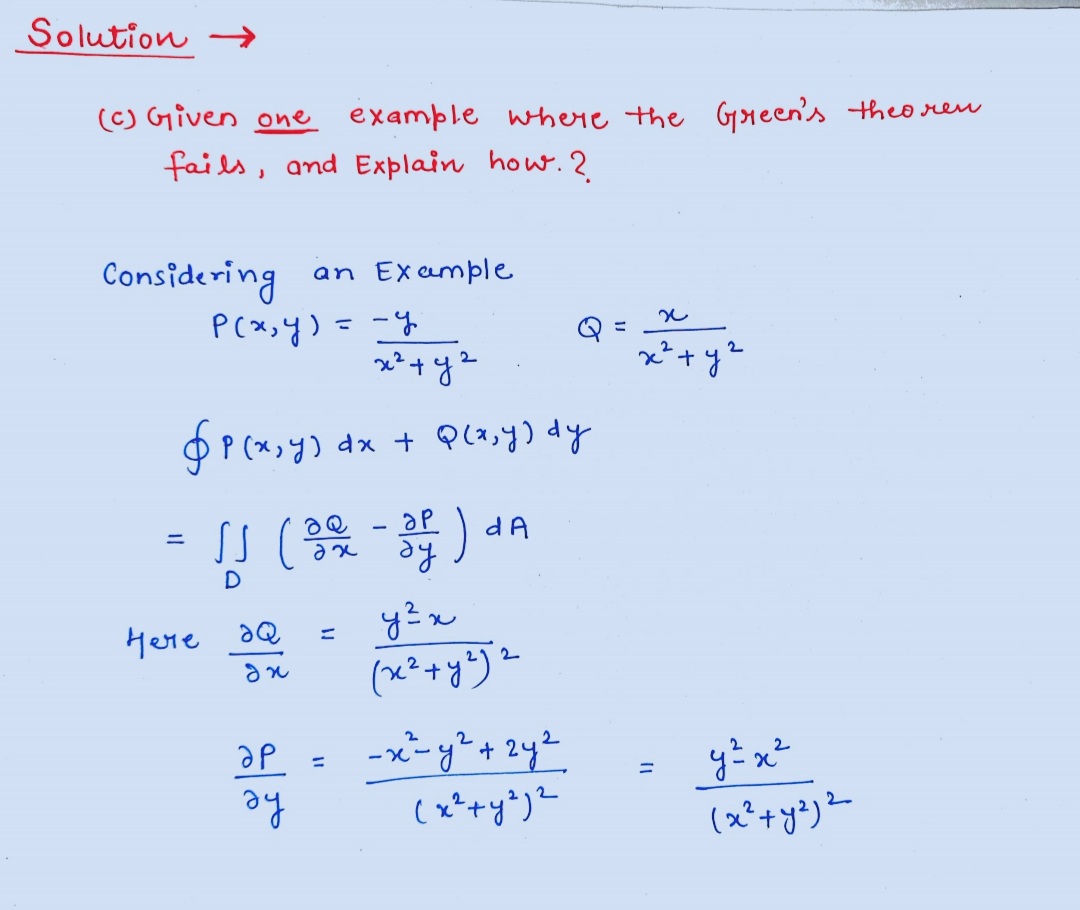 Solution →
(c) Given one example where the Green's theorem
fails, and Explain how.?
Considering an Example
P(x,y) = -y/(x²+y²) Q = x/(x²+y²)
∮ P(x,y) dx + Q(x,y) dy
= ∬_D (∂Q/∂x - ∂P/∂y) dA
Here ∂Q/∂x = (y²-x)/(x²+y²)²
∂P/∂y = (-x²-y²+2y²)/(x²+y²)² = (y²-x²)/(x²+y²)²